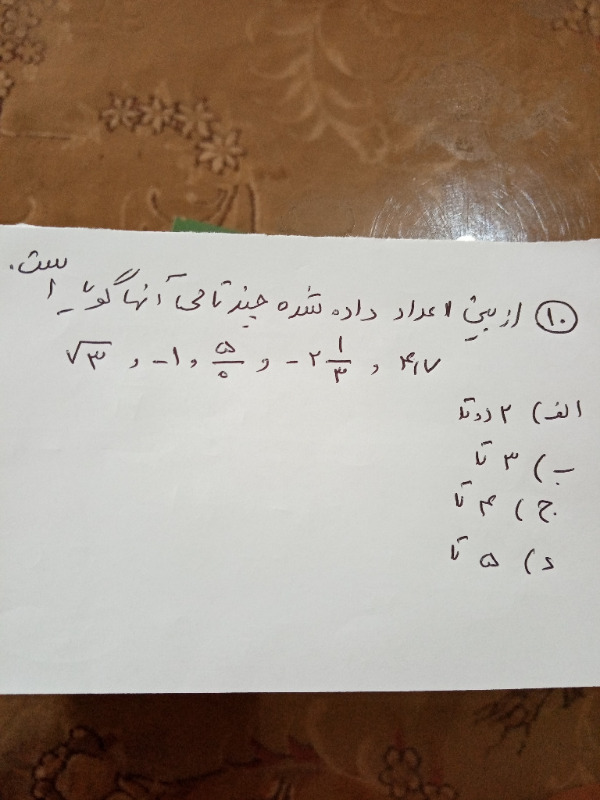 ۱۰ از بین اعداد داده شده چند تا می آنها گویا است.
۴٫۷ , -۲ ۱/۳ , ۵/۰ , -۱ , √۳
الف) ۲ دوتا
ب) ۳ تا
ج) ۴ تا
د) ۵ تا